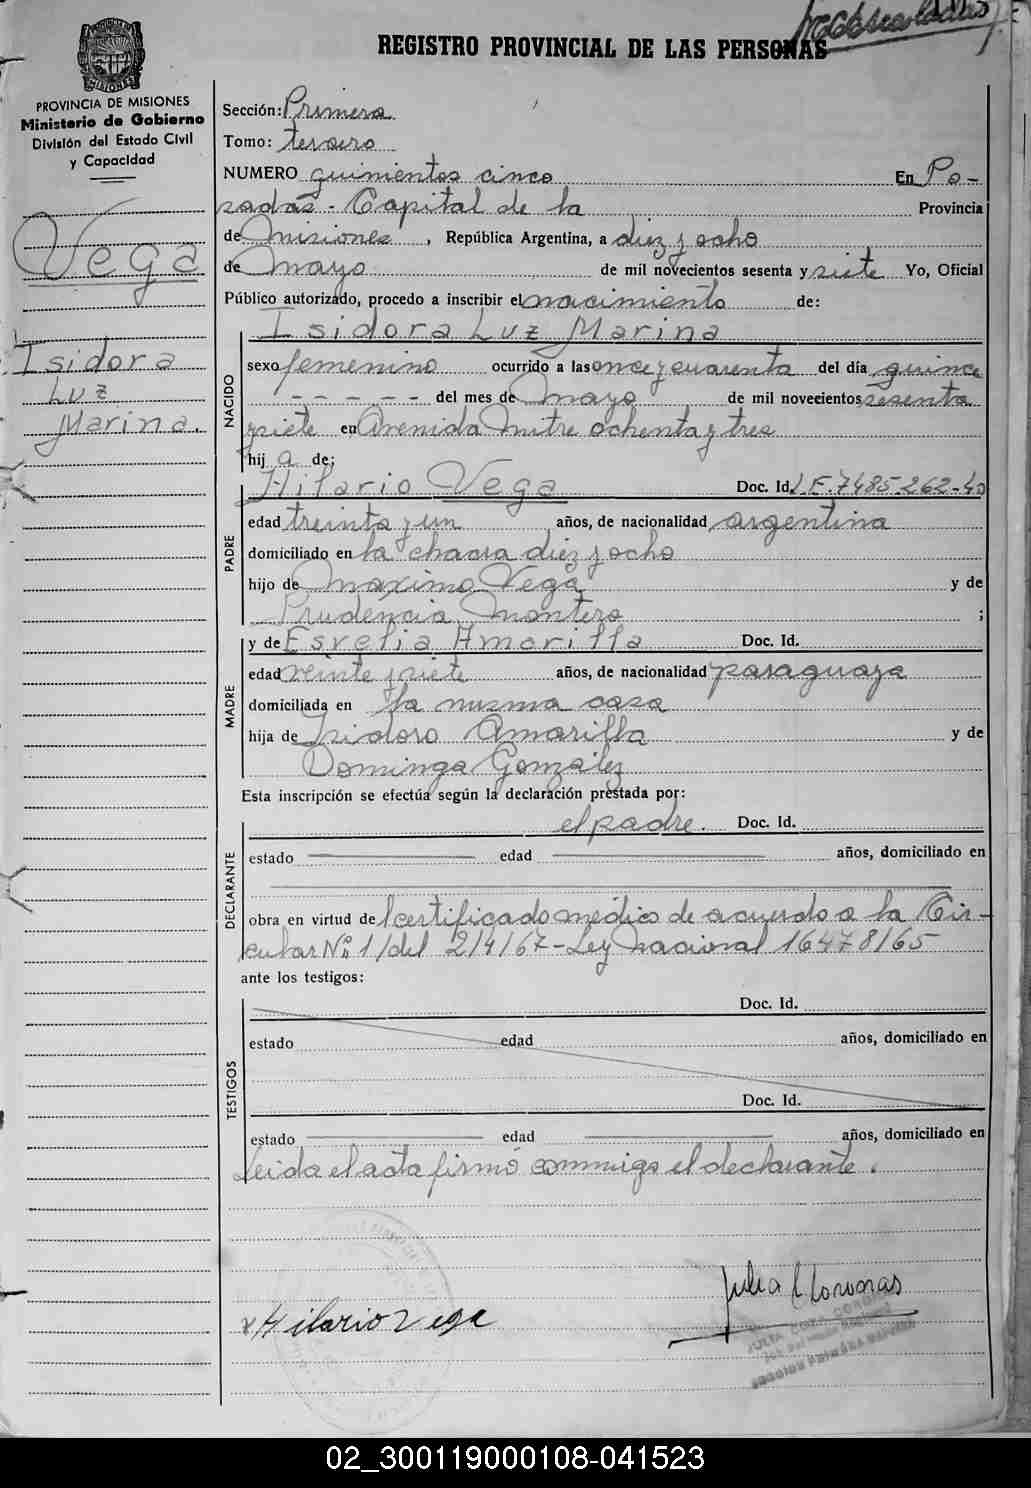 REGISTRO PROVINCIAL DE LAS PERSONAS
PROVINCIA DE MISIONES
Ministerio de Gobierno
División del Estado Civil
y Capacidad
Vega
Isidora
Luz
Marina.
Sección: Primera
Tomo: tercero
NUMERO quinientos cinco En Po-
sadas - Capital de la Provincia
de Misiones, República Argentina, a diez y ocho
de Mayo de mil novecientos sesenta y siete Yo, Oficial
Público autorizado, procedo a inscribir el nacimiento de:
NACIDO
Isidora Luz Marina
sexo femenino ocurrido a las once y cuarenta del día quince
- - - - - del mes de Mayo de mil novecientos sesenta
y siete en Avenida Mitre ochenta y tres
hij a de:
PADRE
Hilario Vega Doc. Id. L.E. 7485-262-
edad treinta y un años, de nacionalidad argentina
domiciliado en la chacra diez y ocho
hijo de Maximo Vega y de
Prudencia Montero ;
MADRE
y de Esvelia Amarilla Doc. Id.
edad veinte y siete años, de nacionalidad paraguaya
domiciliada en la misma casa
hija de Isidoro Amarilla y de
Dominga González
Esta inscripción se efectúa según la declaración prestada por:
DECLARANTE
el padre. Doc. Id.
estado edad años, domiciliado en
obra en virtud de l certificado médico de acuerdo a la Cir-
cular Nº 1/del 2/4/67 - Ley nacional 16478/65
ante los testigos:
TESTIGOS
Doc. Id.
estado edad años, domiciliado en
Doc. Id.
estado edad años, domiciliado en
Leida el acta firmó conmigo el declarante.
Hilario Vega
Julia
SECCION PRIMERA
02_300119000108-041523